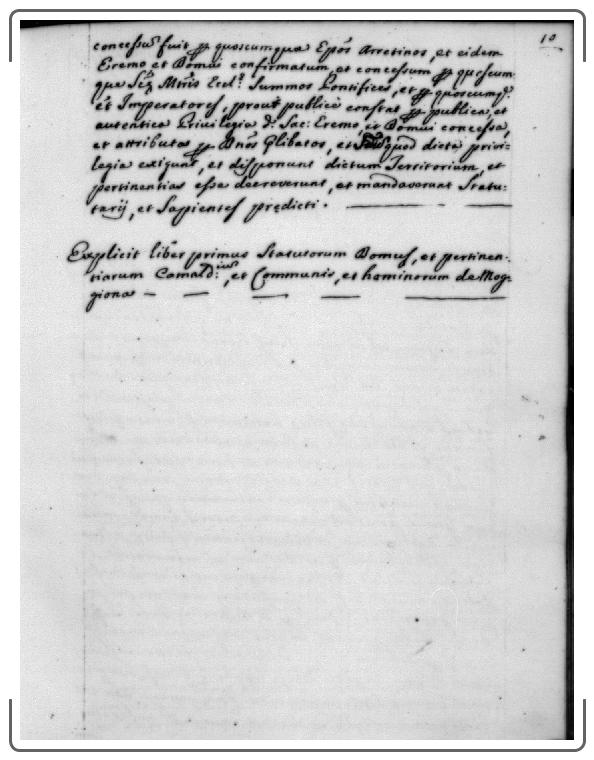 10
concessũ fuit ꝑ quoscumque Epõs Arretinos, et eidem
Eremo et Domui confirmatum et concessum ꝑ quoscum
que Sc̃ Mtris Eccl: Summos Pontifices, et ꝑ quoscumq:
et Imperatores, prout publicè constat ꝑ publica, et
autentica Privilegia d: Sac: Eremo, et Domui concessa,
et attributa ꝑ Dnõs Glibatos, et quod dicta privi-
legia exigunt, et disponunt dictum Territorium, et
pertinentias esse decreverunt, et mandaverunt Statu:
tarij, et Sapientes prędicti.
Explicit liber primus Statutorum Domus, et pertinen-
tiarum Camald:ium, et Communis, et hominorum de Mog-
giona